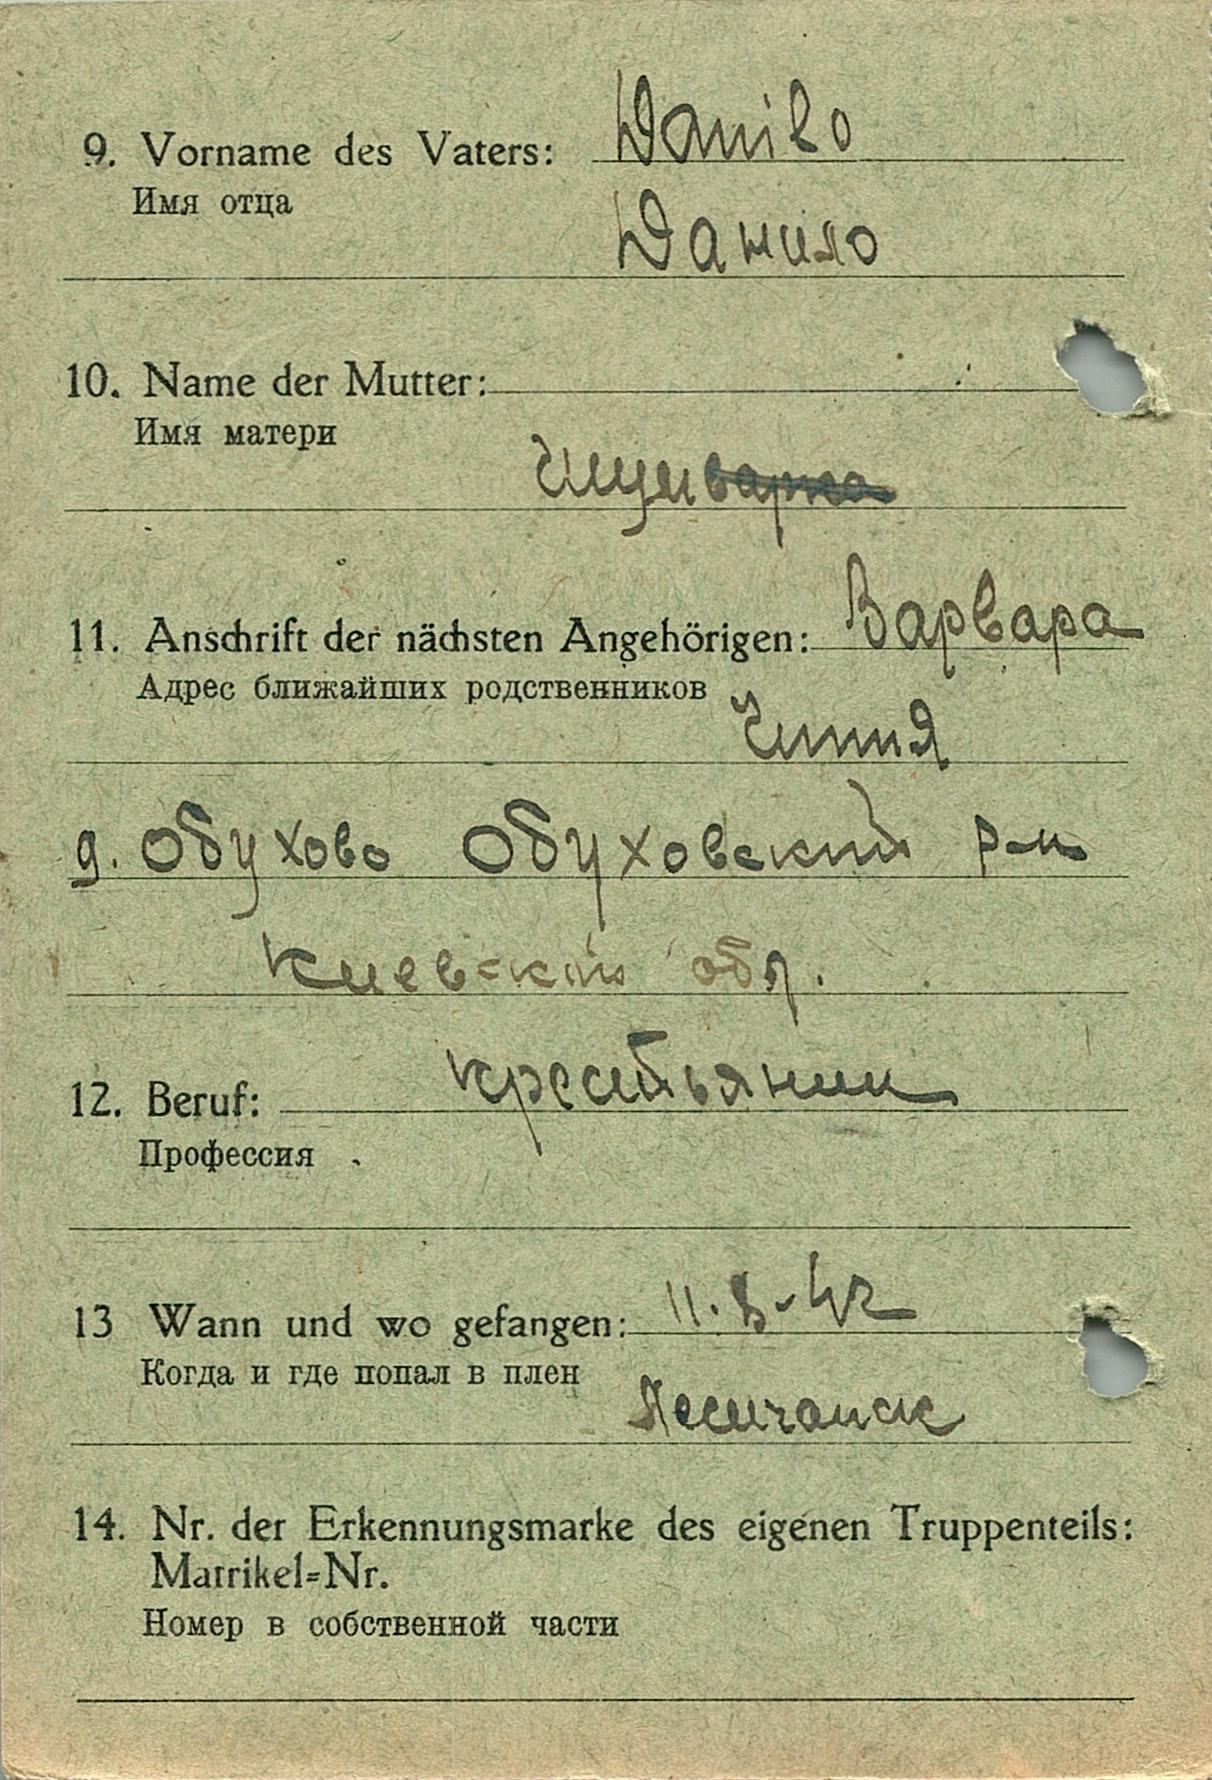 9. Vorname des Vaters: Danilo
Имя отца
Данило
10. Name der Mutter:
Имя матери
11. Anschrift der nächsten Angehörigen: Варвара
Адрес ближайших родственников
д. Обухово Обуховский р-н
Киевский обл.
12. Beruf: крестьянин
Профессия
13 Wann und wo gefangen: 11.
Когда и где попал в плен
Лесичанск
14. Nr. der Erkennungsmarke des eigenen Truppenteils:
Matrikel=Nr.
Номер в собственной части